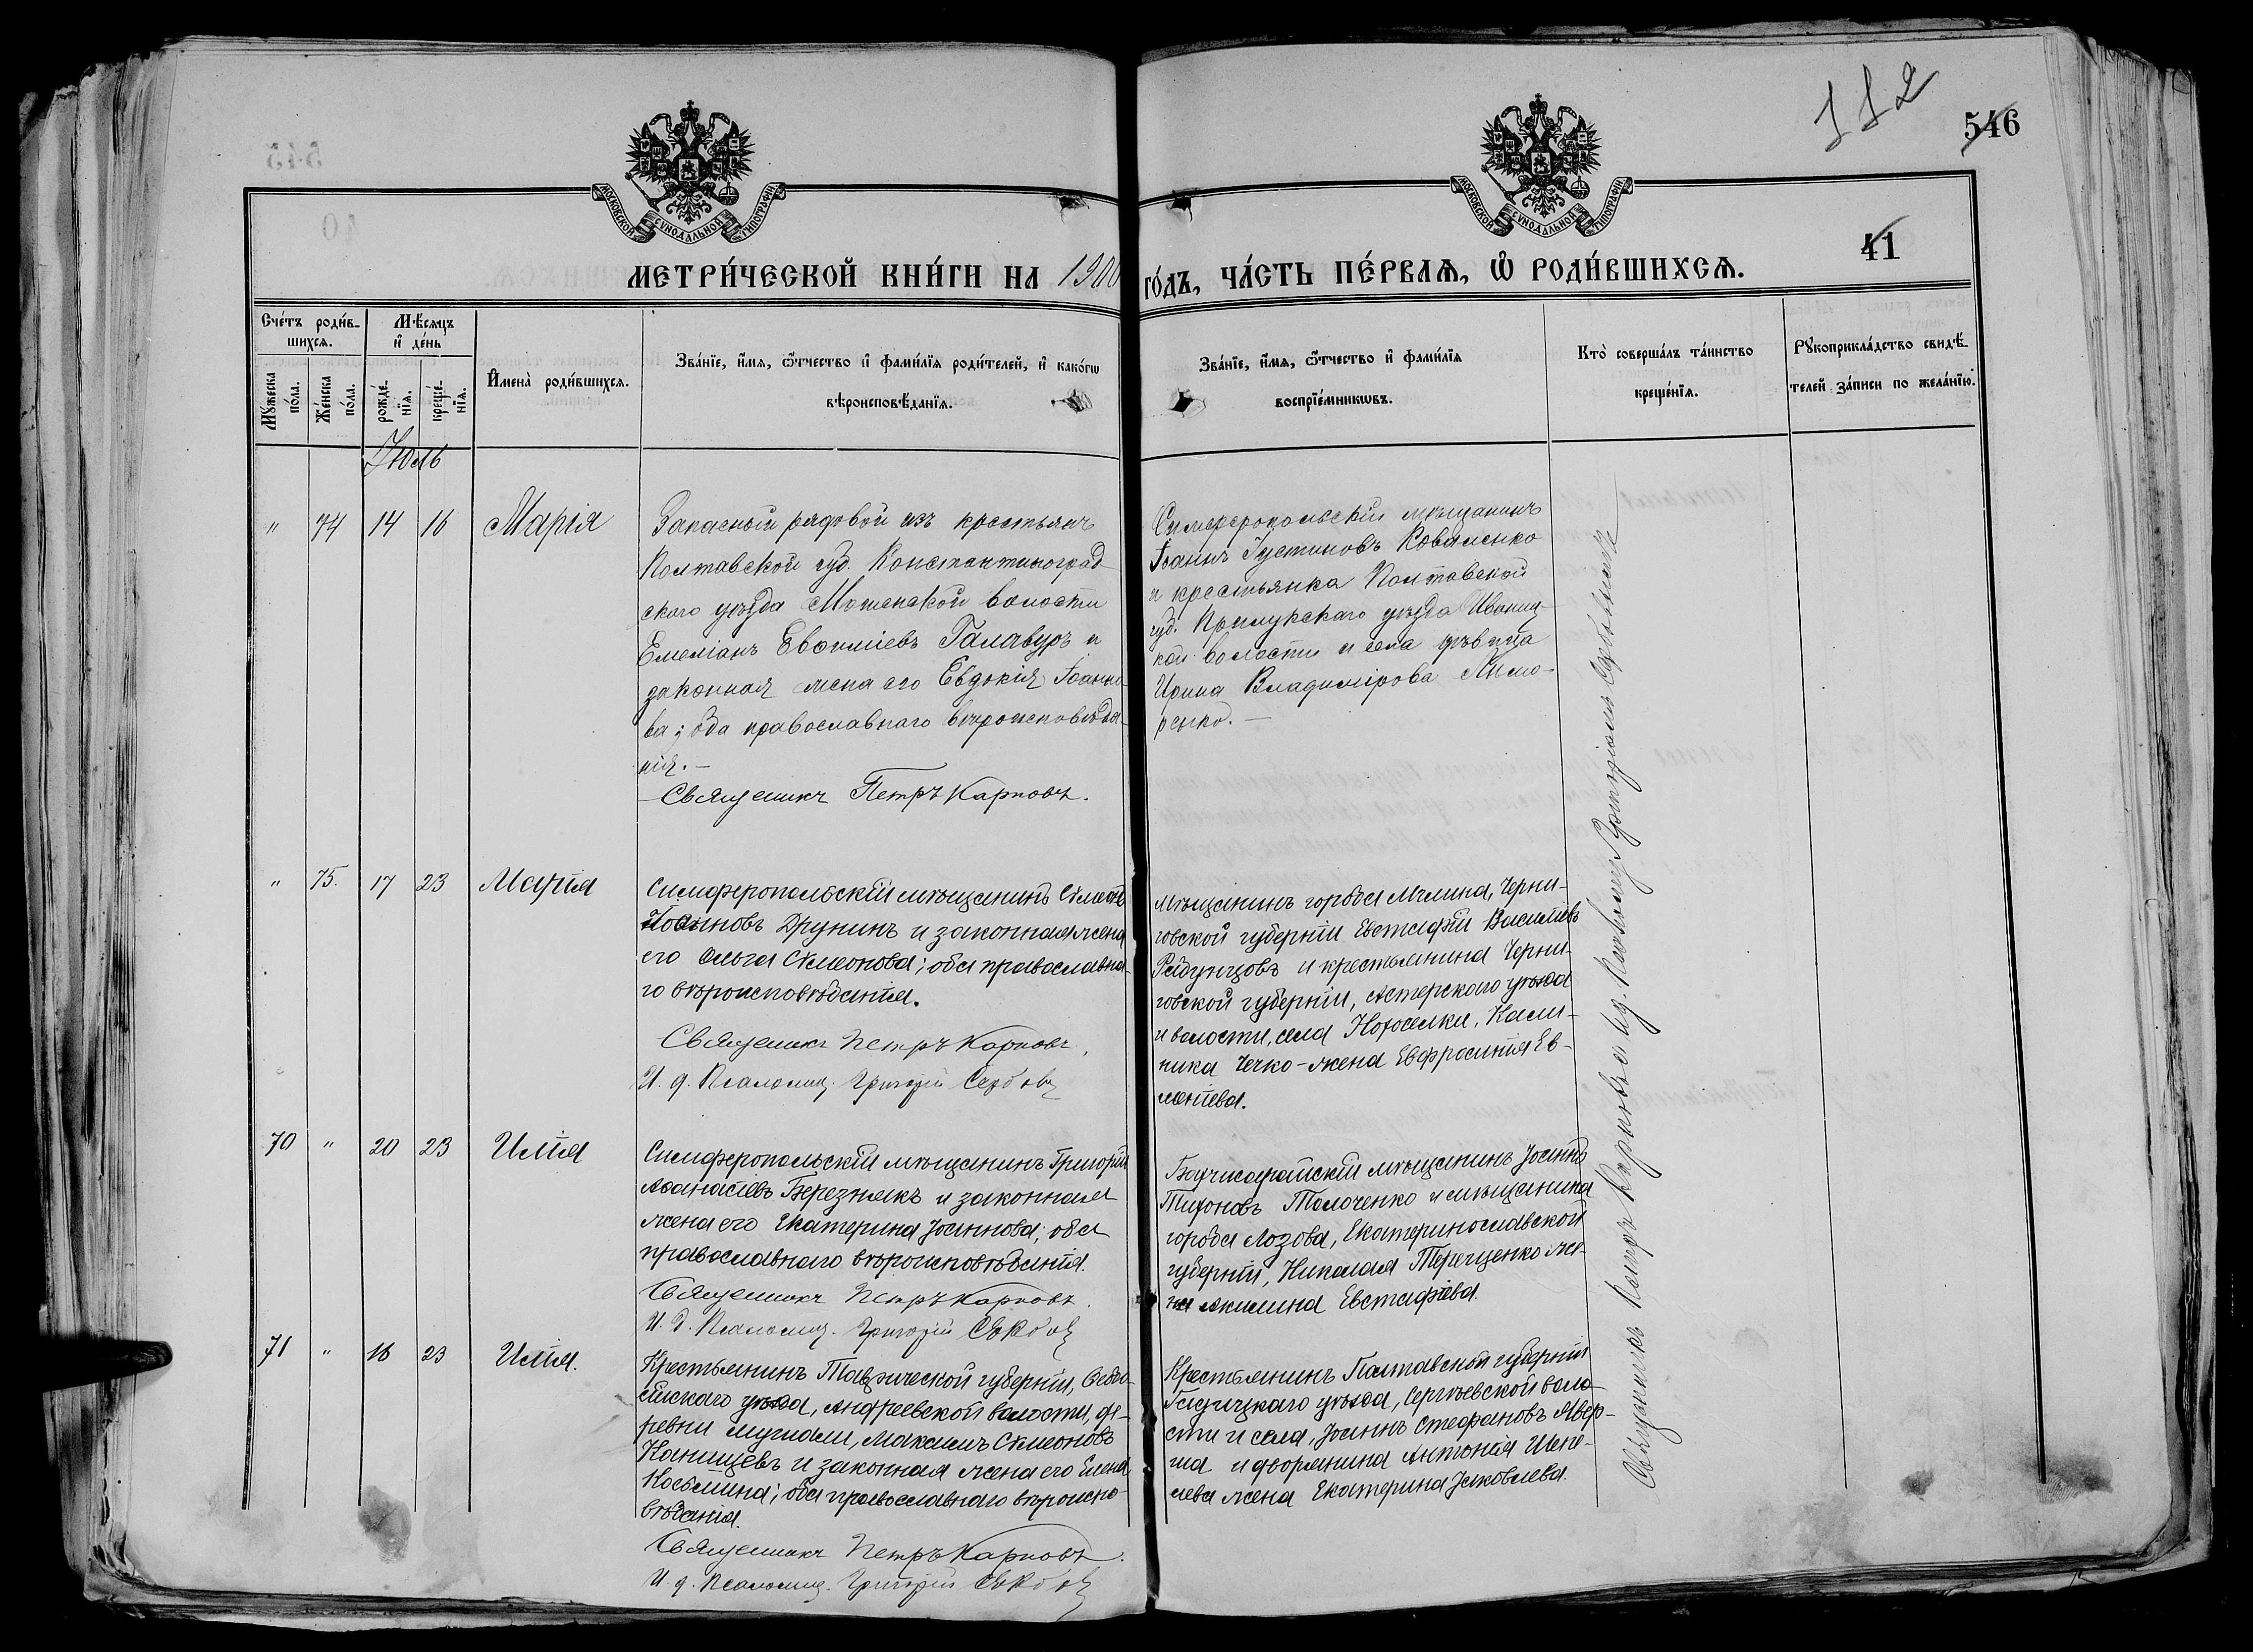 112
546
МОСКОВСКОЙ СѴНОДАЛЬНОЙ ТИПОГРАФІИ
МОСКОВСКОЙ СѴНОДАЛЬНОЙ ТИПОГРАФІИ
41
МЕТРИ́ЧЕСКОЙ КНИ́ГИ НА 1900 ГО́ДЪ, ЧА́СТЬ ПЕ́РВАѦ, Ѡ РОДИ́ВШИХСѦ.
Сче́тъ роди́в-
шихсѧ.
Мѣ́сѧцъ
и҆ де́нь
Мꙋ́жеска
по́ла.
Же́нска
по́ла.
рожде́-
нїѧ.
креще́-
нїѧ.
И҆мена̀ роди́вшихсѧ.
Зва́нїе, и҆́мѧ, ѻ҆́тчество и҆ фами́лїѧ роди́телей, и҆ како́гѡ
вѣроисповѣ́данїѧ.
Зва́нїе, и҆́мѧ, ѻ҆́тчество и҆ фами́лїѧ
воспрїе́мникѡвъ.
Кто̀ соверша́лъ та́инство
креще́нїѧ.
Рꙋкоприкла́дство свидѣ́-
телей за́писи по жела́нїю.
Іюль
" 74 14 16 Марія
Запасный рядовой изъ крестьянъ
Полтавской губ. Константиноград-
скаго уѣзда волости
Емеліанъ Евѳиміевъ Галавуръ и
законная жена его Евдокія Іоанно-
ва; оба православнаго вѣроисповѣда-
нія.—
Священникъ Петръ Карповъ.
Симферопольскій мѣщанинъ
Іоаннъ Іустиновъ Коваленко
и крестьянка Полтавской
губ. Прилукскаго уѣзда Иваниц-
кой волости и села дѣвица
Ирина Владимірова
ренко.—
" 75. 17 23 Марія
Симферопольскій мѣщанинъ Сѵмеонъ
Іоанновъ Друнинъ и законная жена
его Ольга Сѵмеонова; оба православна-
го вѣроисповѣданія.
Священникъ Петръ Карповъ.
И. д. Псаломщ. Григорій
Мѣщанинъ города Мглина, Черни-
говской губерніи Евстафій Василіевъ
и крестьянина Черни-
говской губерніи, Остерскаго уѣзда
и волости, села Новоселки, Кали-
ника Чечко-жена Евфросинія Ев-
меніева.
70 " 20 23 Илія
Симферопольскій мѣщанинъ Григорій
Аѳанасіевъ Березнякъ и законная
жена его Екатерина Іоаннова; оба
православнаго вѣроисповѣданія.
Священникъ Петръ Карповъ.
И. д. Псаломщ. Григорій
Бахчисарайскій мѣщанинъ Іоаннъ
Тихоновъ Толоченко и мѣщанина
города Лозова, Екатеринославской
губерніи, Николая Терещенко же-
на Акилина Евстафіева.
71 " 16 23 Илія.
Крестьянинъ Таврической губерніи, Ѳеодо-
сійскаго уѣзда, Андреевской волости, де-
ревни Максимъ Сѵмеоновъ
Канищевъ и законная жена его Елена
Косьмина; оба православнаго вѣроиспо-
вѣданія.
Священникъ Петръ Карповъ.
И. д. Псаломщ. Григорій
Крестьянинъ Полтавской губерніи
Гадячскаго уѣзда, Сергѣевской воло-
сти и села, Іоаннъ Стефановъ Явер-
ша и дворянина Антонія Шепе-
лева жена Екатерина Іаковлева.
Священникъ Петръ Карповъ и и.д. Псаломщ. Григорій